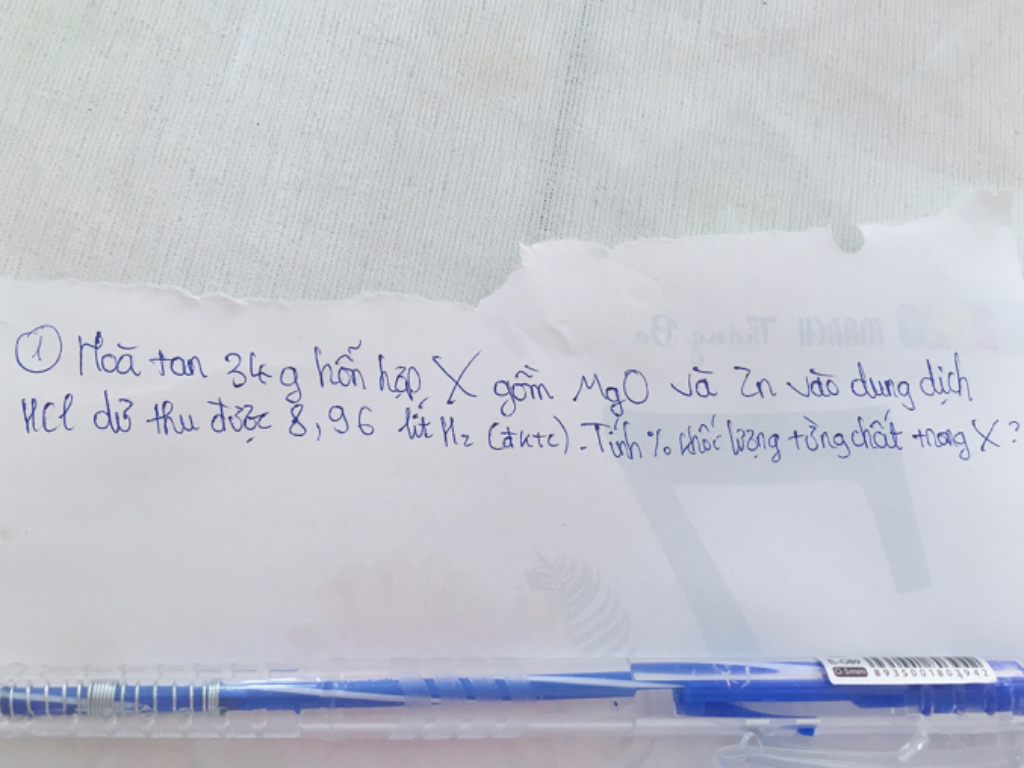 ① Hoà tan 34g hỗn hợp X gồm MgO và Zn vào dung dịch
HCl dư thu được 8,96 lít H₂ (đktc). Tính % khốc lượng từng chất trong X?
MARCH Tháng Ba
TL-089
0.5mm
8935001803942